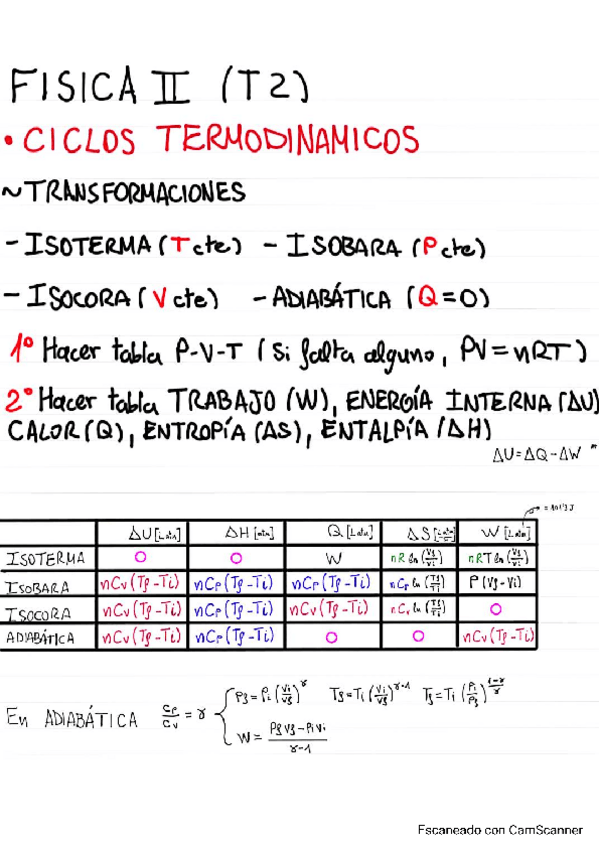 FISICA II (T2)
• CICLOS TERMODINAMICOS
~ TRANSFORMACIONES
- ISOTERMA (T cte) - ISOBARA (P cte)
- ISOCORA (V cte) - ADIABÁTICA (Q=0)
1º Hacer tabla P-V-T (Si falta alguno, PV=nRT)
2º Hacer tabla TRABAJO (W), ENERGÍA INTERNA (ΔU)
CALOR (Q), ENTROPÍA (ΔS), ENTALPÍA (ΔH)
ΔU=ΔQ-ΔW
ΔU [Latm] ΔH [atm] Q [Latm] ΔS W [Latm]
ISOTERMA 0 0 W nR ln (Vf/Vi) nRT ln (Vf/Vi)
ISOBARA nCv (Tf-Ti) nCp (Tf-Ti) nCp (Tf-Ti) nCp ln (Tf/Ti) P (Vf-Vi)
ISOCORA nCv (Tf-Ti) nCp (Tf-Ti) nCv (Tf-Ti) nCv ln (Tf/Ti) 0
ADIABÁTICA nCv (Tf-Ti) nCp (Tf-Ti) 0 0 nCv (Tf-Ti)
En ADIABÁTICA Cp/Cv = γ { Pf = Pi (Vi/Vf)^γ Tf = Ti (Vi/Vf)^γ-1 Tf = Ti (Pi/Pf)^1-γ/γ
W = PfVf-PiVi/γ-1
Escaneado con CamScanner